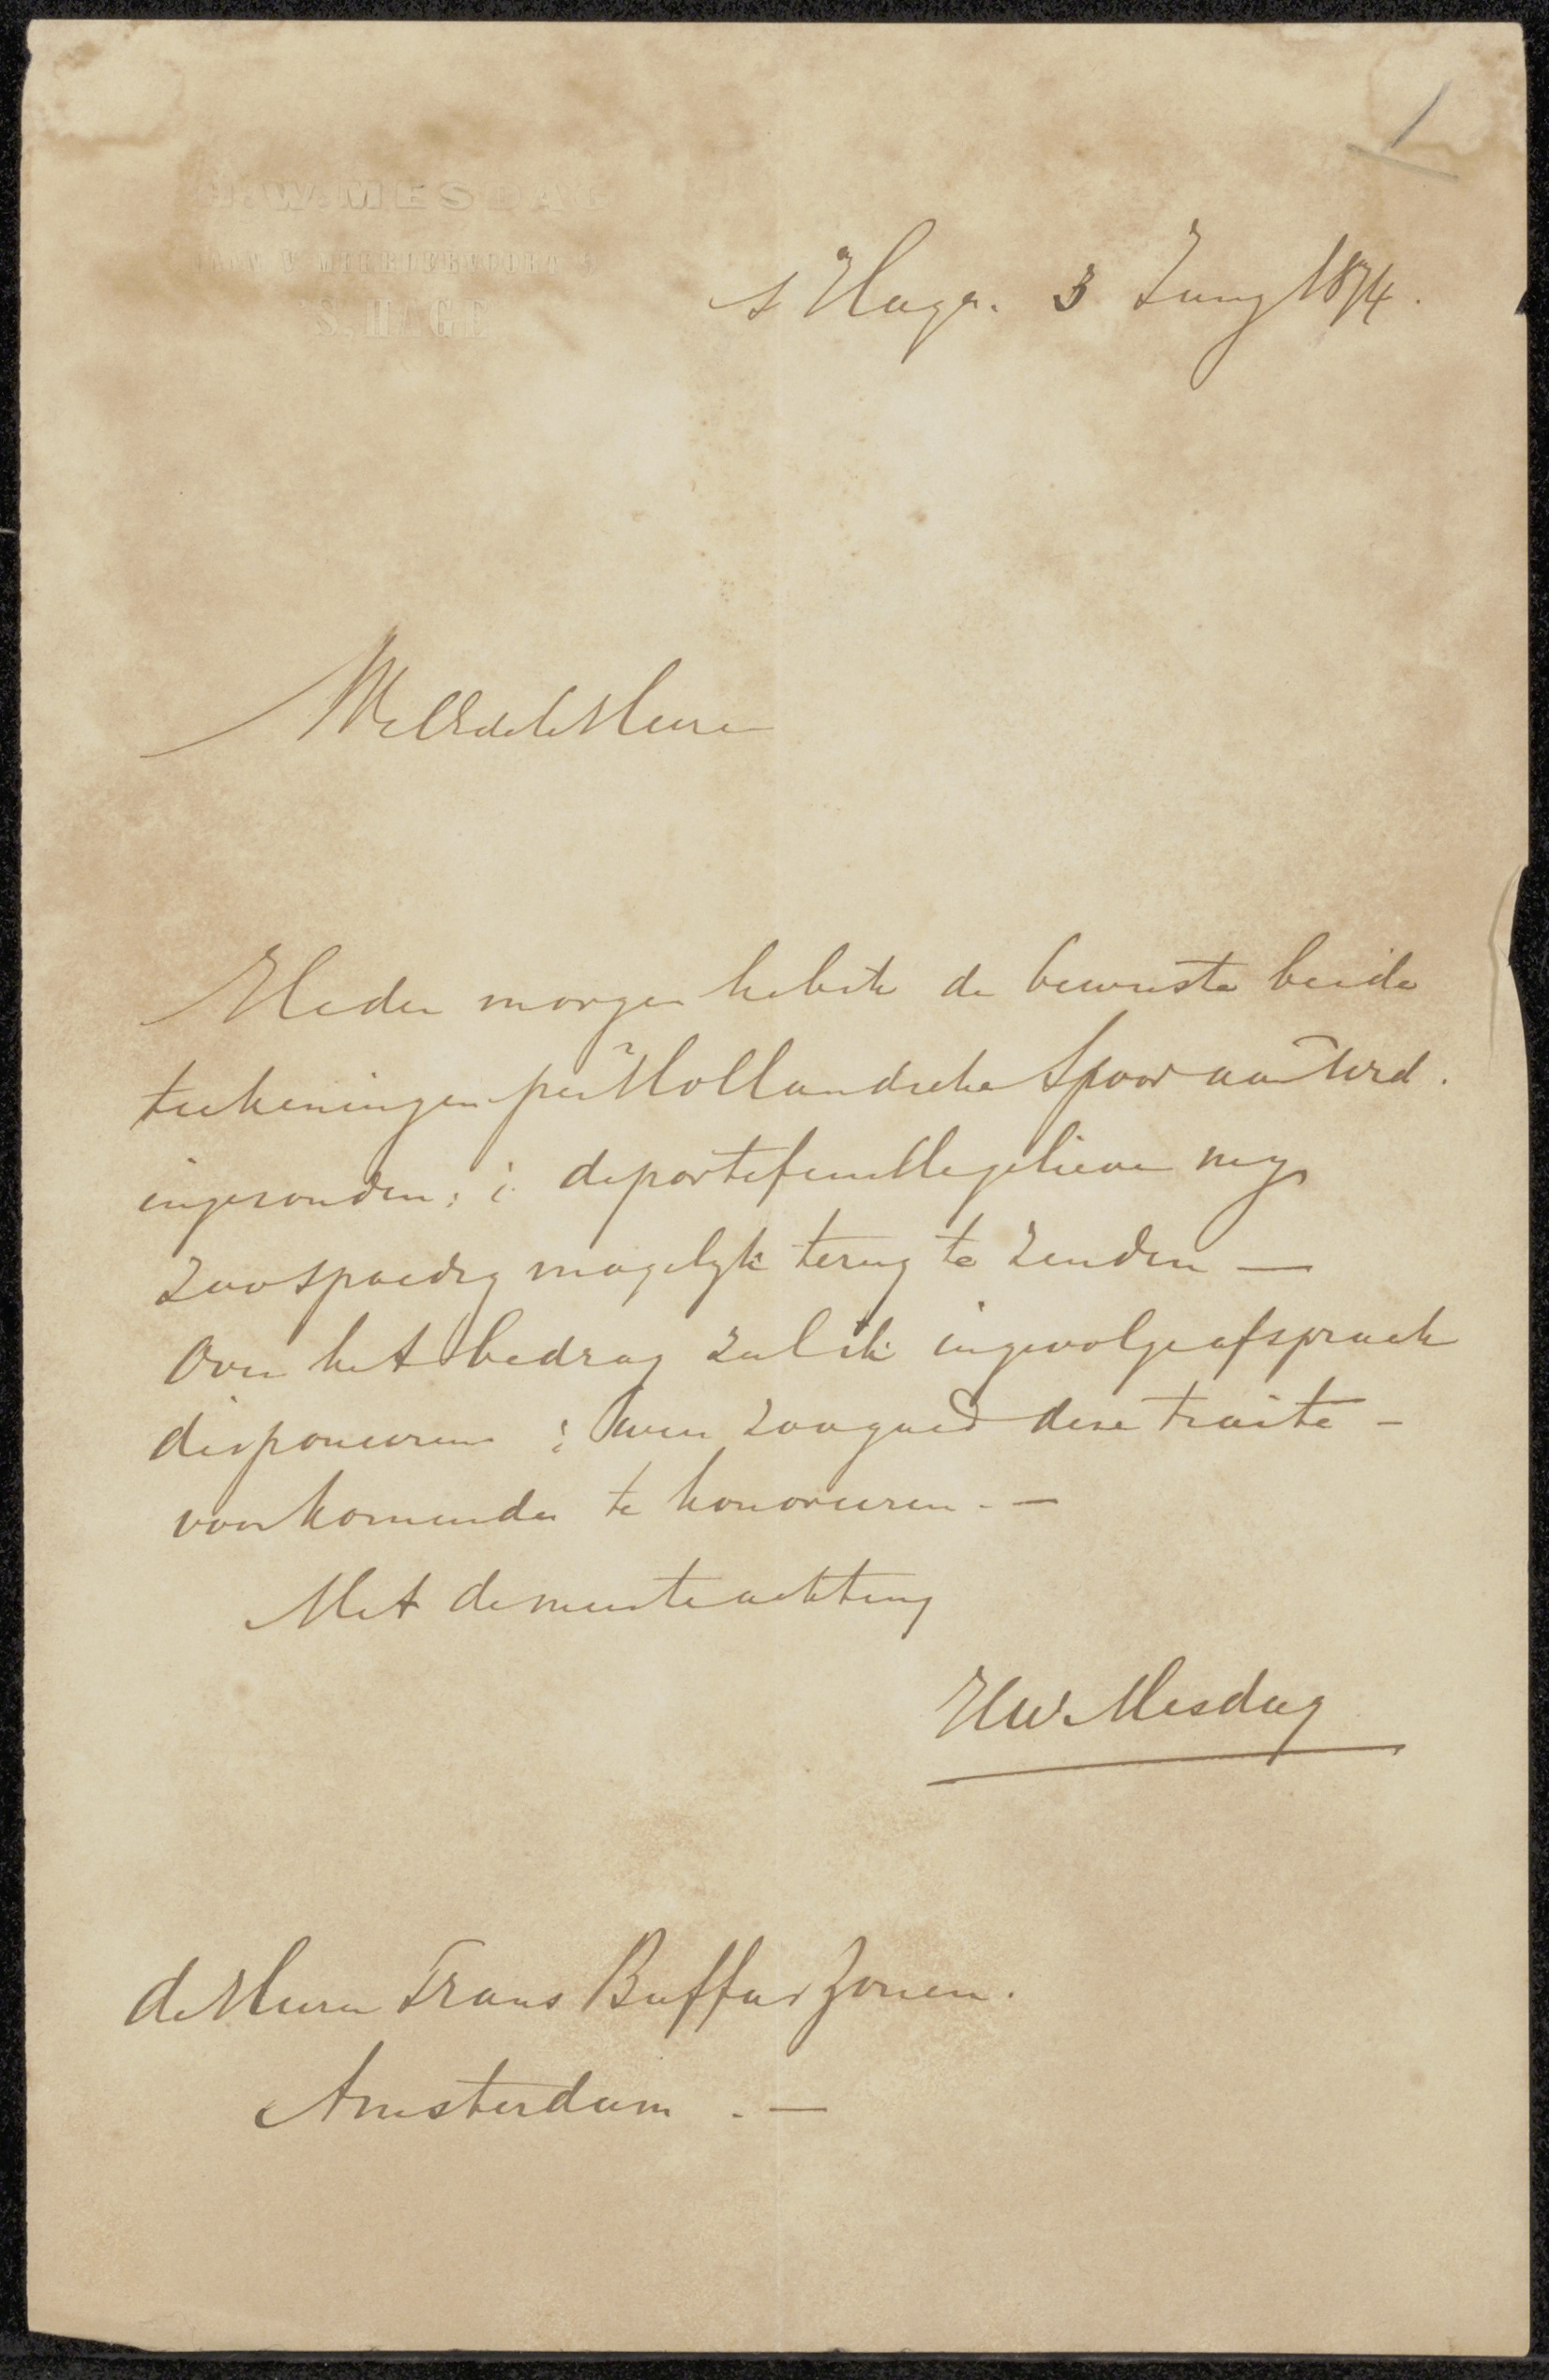 1
H. W. MESDAG
'S. HAGE
s Hage. 3 Juny 1874.
WelEdele Heeren
Heden morgen heb ik de bewuste beide
teekeningen per Hollandsche Spoor aan UEd.
ingezonden; de portefeuille gelieve my
zoo spoedig mogelyk terug te zenden —
Over het bedrag zal ik ingevolge afspraak
disponeeren ; wees zoo goed deze traite -
voorkomende te honoreeren. —
Met de meeste achting
HW. Mesdag
de Heeren Frans Buffa & Zonen.
Amsterdam . —